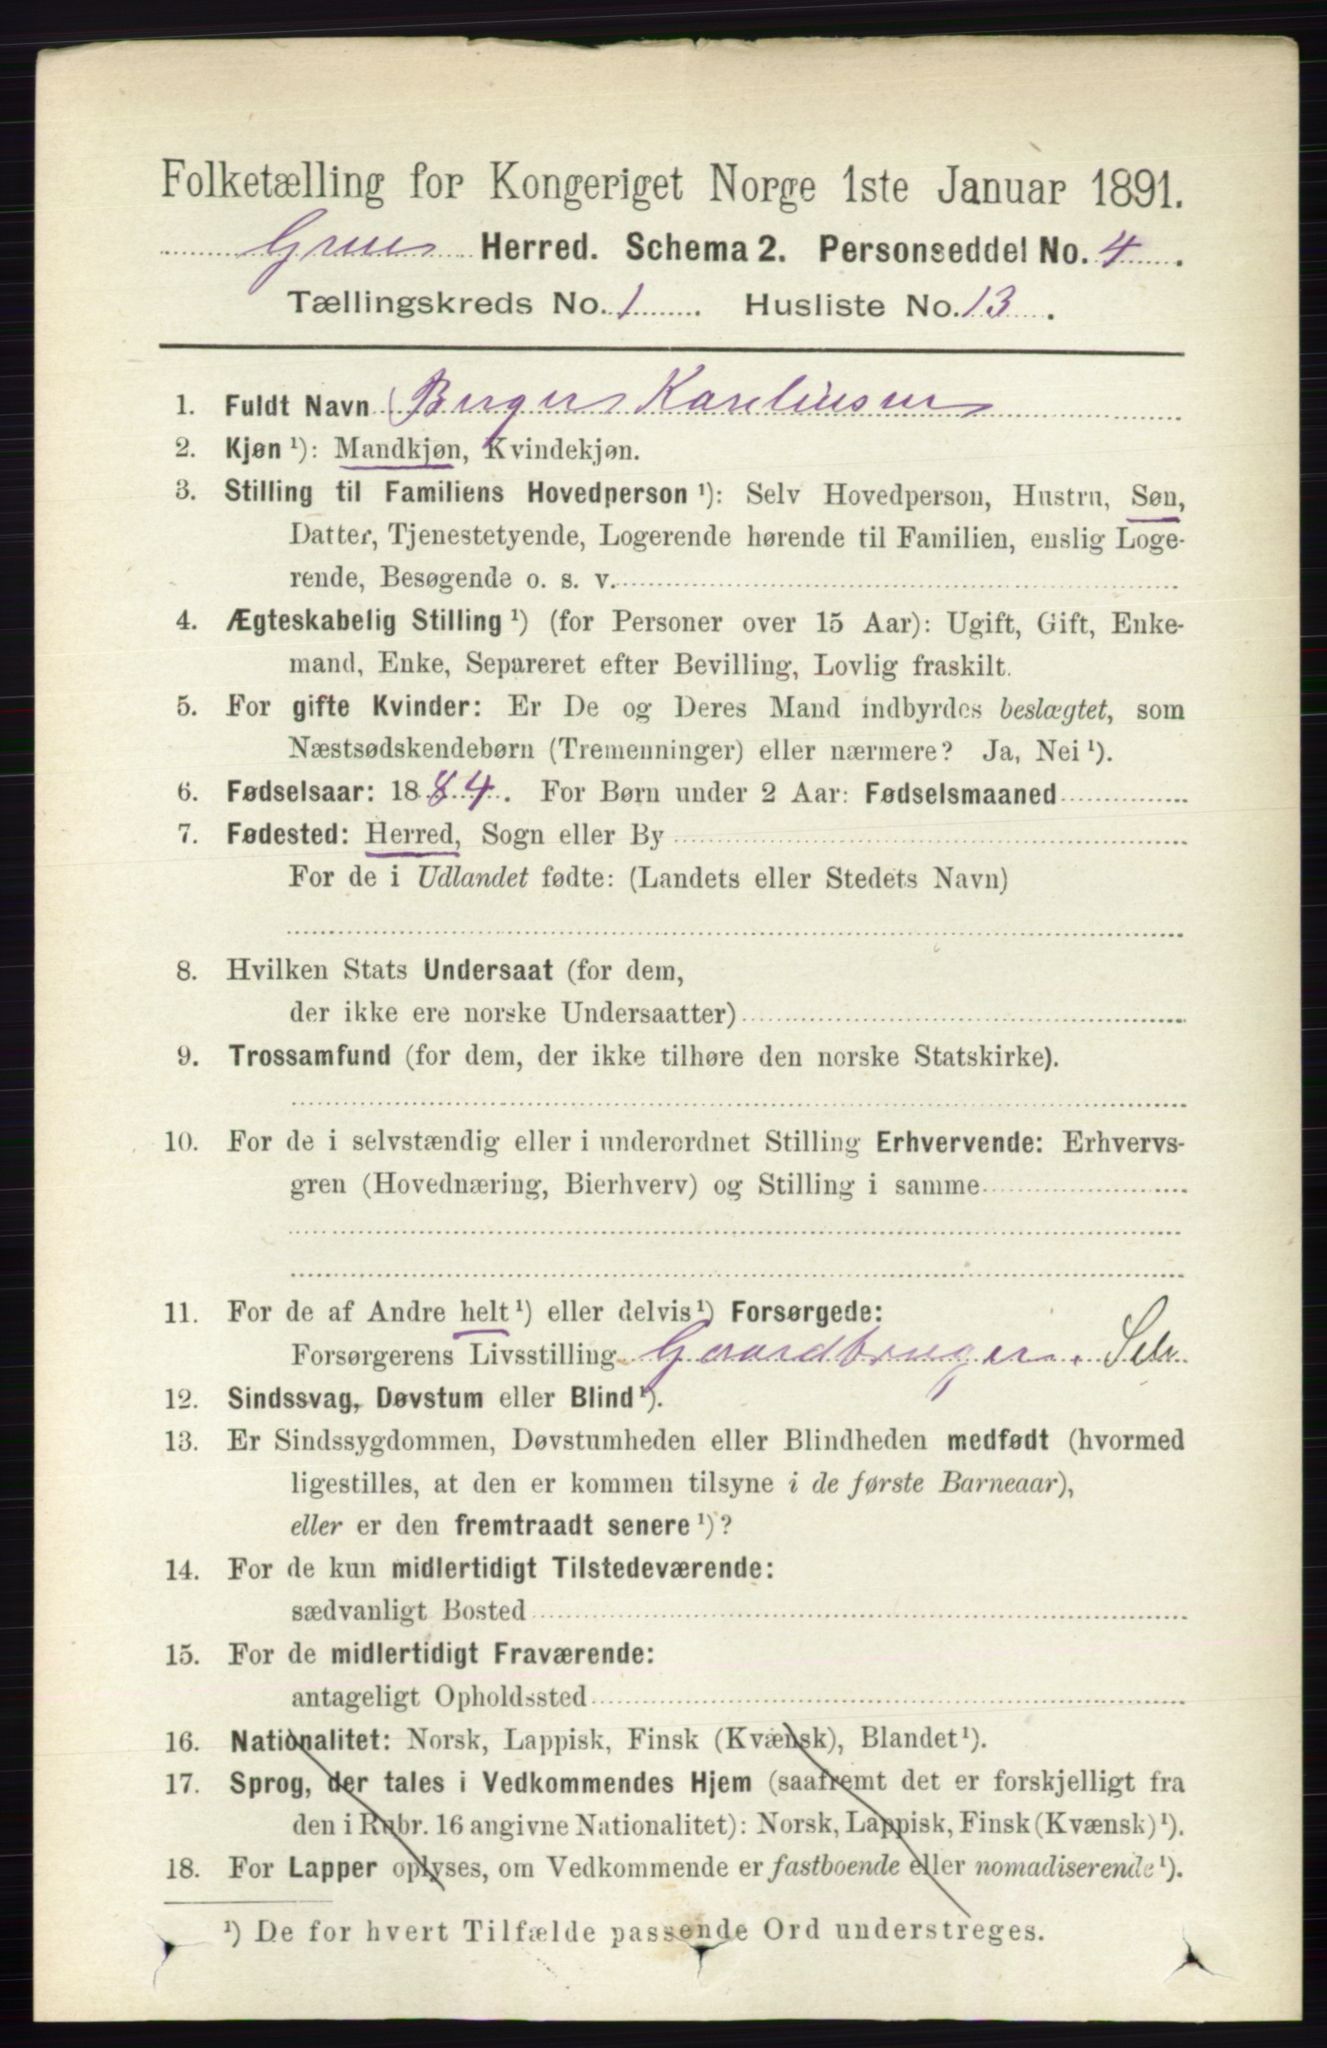 Folketælling for Kongeriget Norge 1ste Januar 1891.
Grue Herred. Schema 2. Personseddel No. 4.
Tællingskreds No. 1. Husliste No. 13.
1. Fuldt Navn Berger Karelinsen
2. Kjøn ¹): Mandkjøn, Kvindekjøn.
3. Stilling til Familiens Hovedperson ¹): Selv Hovedperson, Hustru, Søn,
Datter, Tjenestetyende, Logerende hørende til Familien, enslig Loge-
rende, Besøgende o. s. v.
4. Ægteskabelig Stilling ¹) (for Personer over 15 Aar): Ugift, Gift, Enke-
mand, Enke, Separeret efter Bevilling, Lovlig fraskilt.
5. For gifte Kvinder: Er De og Deres Mand indbyrdes beslægtet, som
Næstsødskendebørn (Tremenninger) eller nærmere? Ja, Nei ¹).
6. Fødselsaar: 1884. For Børn under 2 Aar: Fødselsmaaned
7. Fødested: Herred, Sogn eller By
For de i Udlandet fødte: (Landets eller Stedets Navn)
8. Hvilken Stats Undersaat (for dem,
der ikke ere norske Undersaatter)
9. Trossamfund (for dem, der ikke tilhøre den norske Statskirke).
10. For de i selvstændig eller i underordnet Stilling Erhvervende: Erhvervs-
gren (Hovednæring, Bierhverv) og Stilling i samme
11. For de af Andre helt ¹) eller delvis ¹) Forsørgede:
Forsørgerens Livsstilling Gaardbruger. Selv
12. Sindssvag, Døvstum eller Blind ¹).
13. Er Sindssygdommen, Døvstumheden eller Blindheden medfødt (hvormed
ligestilles, at den er kommen tilsyne i de første Barneaar),
eller er den fremtraadt senere ¹)?
14. For de kun midlertidigt Tilstedeværende:
sædvanligt Bosted
15. For de midlertidigt Fraværende:
antageligt Opholdssted
16. Nationalitet: Norsk, Lappisk, Finsk (Kvænsk), Blandet ¹).
17. Sprog, der tales i Vedkommendes Hjem (saafremt det er forskjelligt fra
den i Rubr. 16 angivne Nationalitet): Norsk, Lappisk, Finsk (Kvænsk) ¹).
18. For Lapper oplyses, om Vedkommende er fastboende eller nomadiserende ¹).
¹) De for hvert Tilfælde passende Ord understreges.